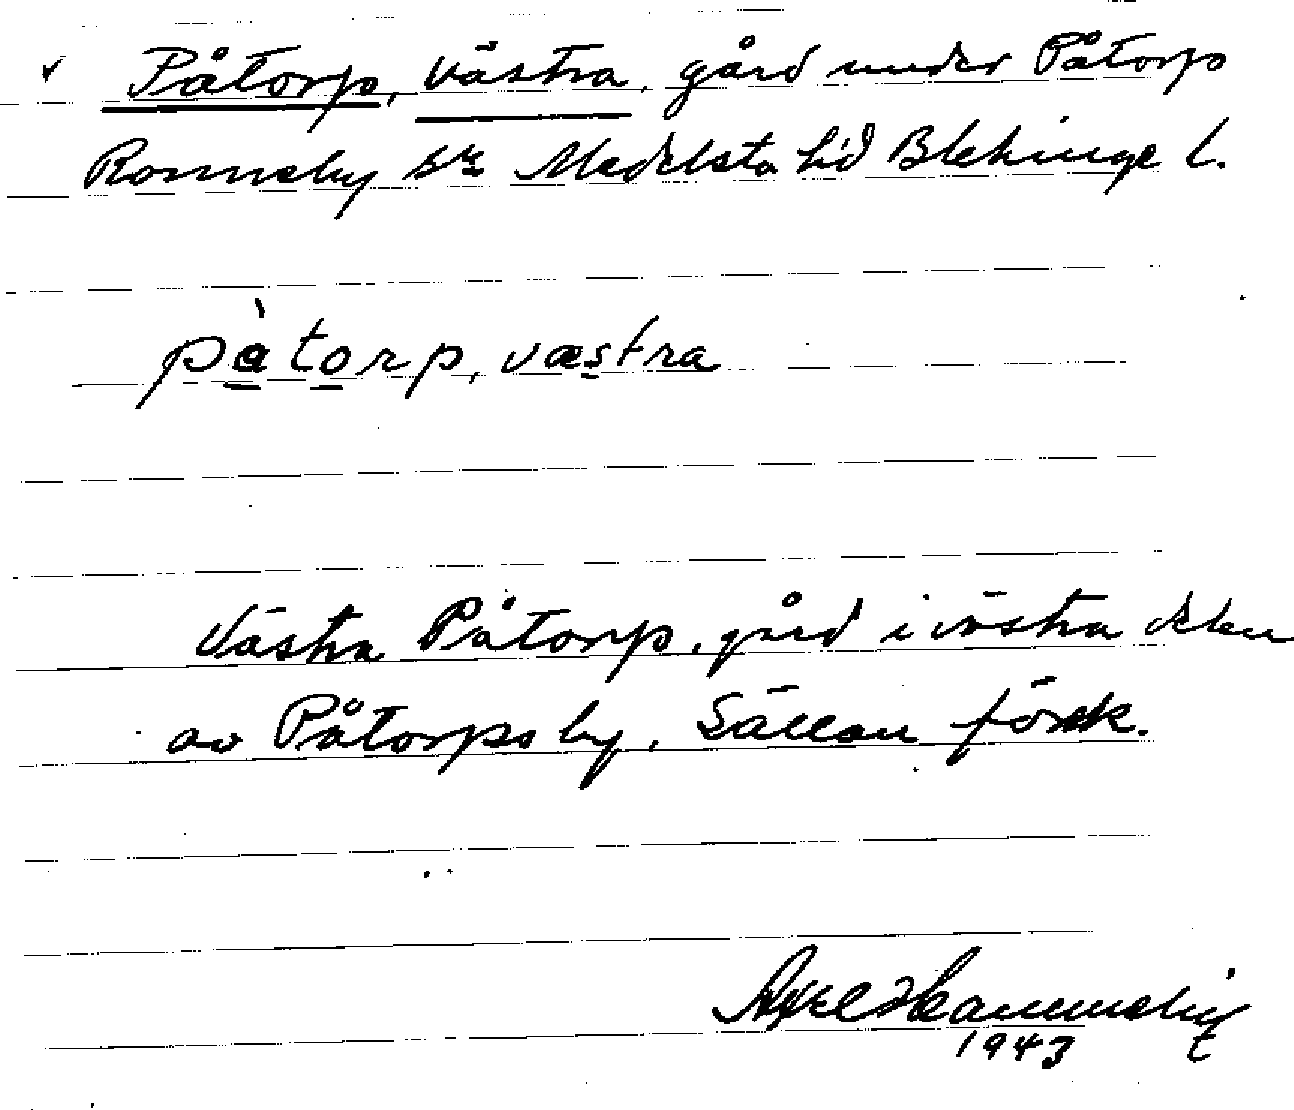 Påtorp, västra, gård under Påtorp
Ronneby sn Medelsta hd Blekinge l.
pàtorp, væstra
Västra Påtorp, gård i västra delen
av Påtorps by. Sällan förek.
Axel
1943